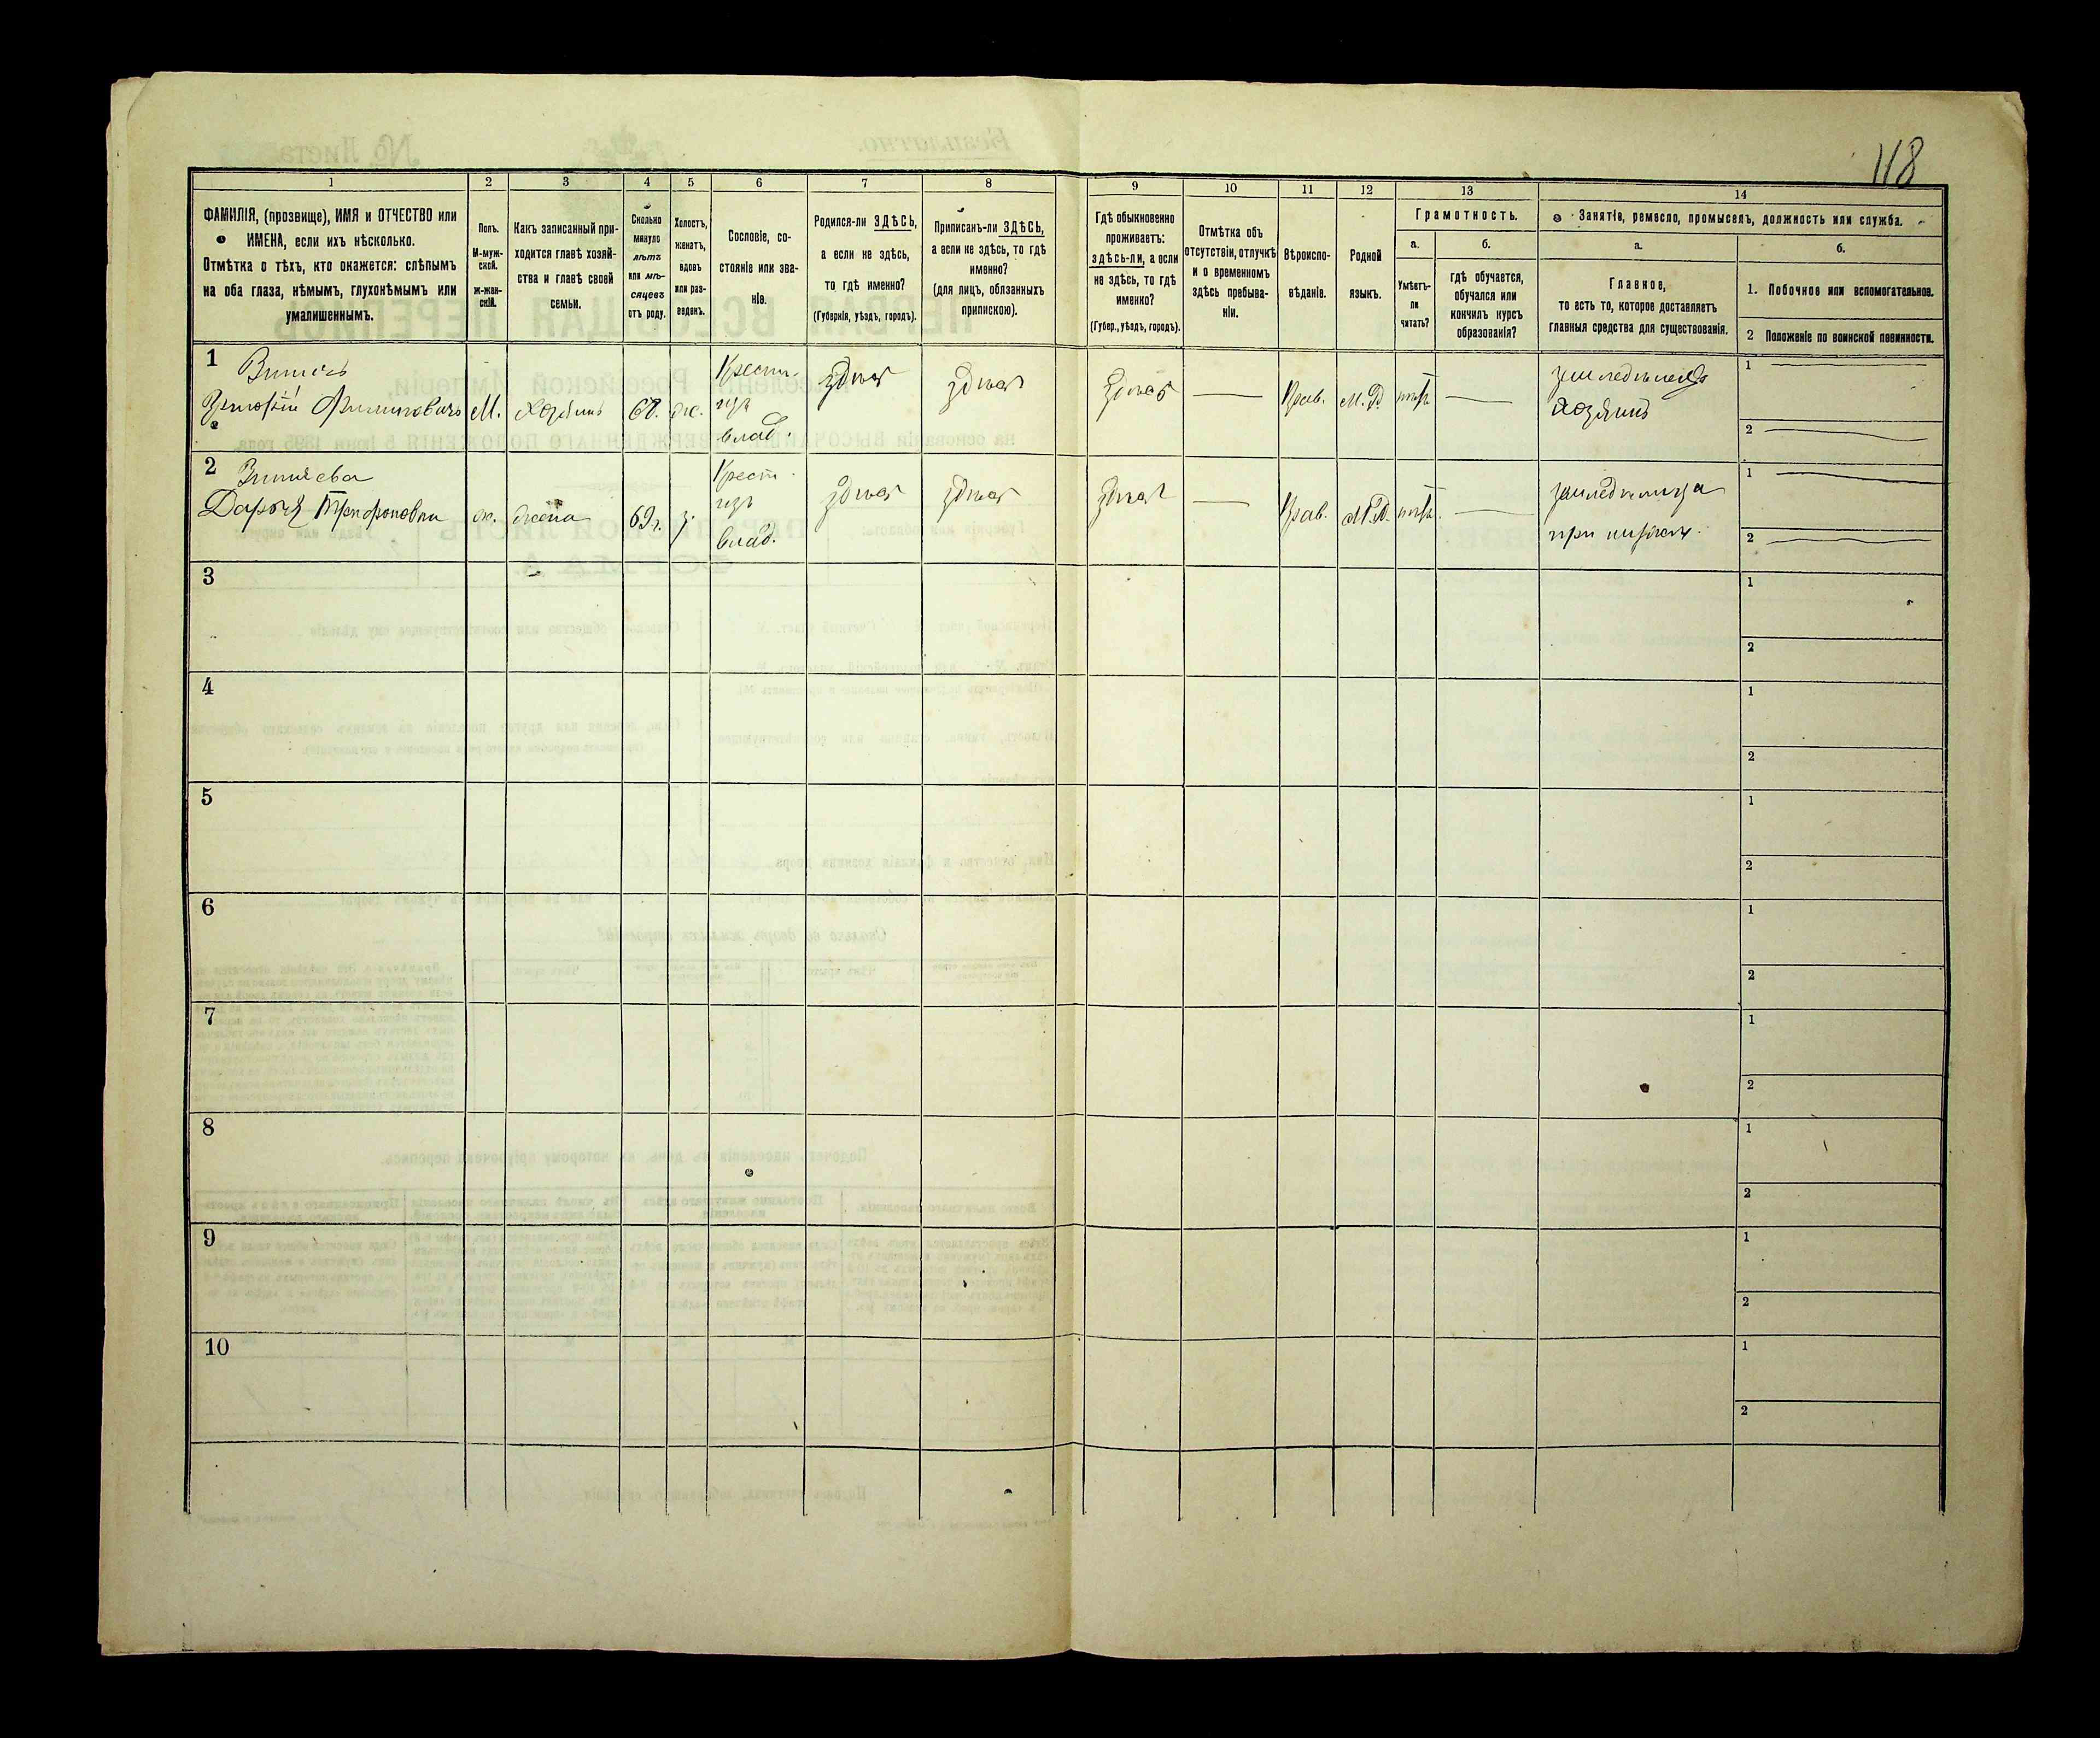 118
1
2
3
4
5
6
7
8
9
10
11
12
13
14
ФАМИЛІЯ, (прозвище), ИМЯ и ОТЧЕСТВО или
ИМЕНА, если ихъ нѣсколько.
Отмѣтка о тѣхъ, кто окажется: слѣпымъ
на оба глаза, нѣмымъ, глухонѣмымъ или
умалишеннымъ.
Полъ.
М-муж-
ской.
ж-жен-
скій.
Какъ записанный при-
ходится главѣ хозяй-
ства и главѣ своей
семьи.
Сколько
минуло
лѣтъ
или мѣ-
сяцевъ
отъ роду.
Холостъ,
женатъ,
вдовъ
или раз-
веденъ.
Сословіе, со-
стояніе или зва-
ніе.
Родился-ли ЗДѢСЬ,
а если не здѣсь,
то гдѣ именно?
(Губернія, уѣздъ, городъ).
Приписанъ-ли ЗДѢСЬ,
а если не здѣсь, то гдѣ
именно?
(для лицъ, обязанныхъ
припискою).
Гдѣ обыкновенно
проживаетъ:
здѣсь-ли, а если
не здѣсь, то гдѣ
именно?
(Губер., уѣздъ, городъ).
Отмѣтка объ
отсутствіи, отлучкѣ
и о временномъ
здѣсь пребыва-
ніи.
Вѣроиспо-
вѣданіе.
Родной
языкъ.
Грамотность.
а.
Умѣетъ-
ли
читать?
б.
гдѣ обучается,
обучался или
кончилъ курсъ
образованія?
Занятіе, ремесло, промыселъ, должность или служба.
а.
Главное,
то есть то, которое доставляетъ
главныя средства для существованія.
б.
1. Побочное или вспомогательное.
2 Положеніе по воинской повинности.
1
М.
Хозяинъ
68.
ж.
Крестн.
изъ
влад.
здѣсь
здѣсь
здѣсь
Прав.
М. Р.
нѣтъ
земледѣлецъ
хозяинъ
1
2
2
Дарья Трифоновна
ж.
жена
69 г.
з.
Крест.
изъ
влад.
здѣсь
здѣсь
здѣсь
Прав.
М. Р.
нѣтъ.
земледѣлица
при мужѣ.
1
2
3
1
2
4
1
2
5
1
2
6
1
2
7
1
2
8
1
2
9
1
2
10
1
2